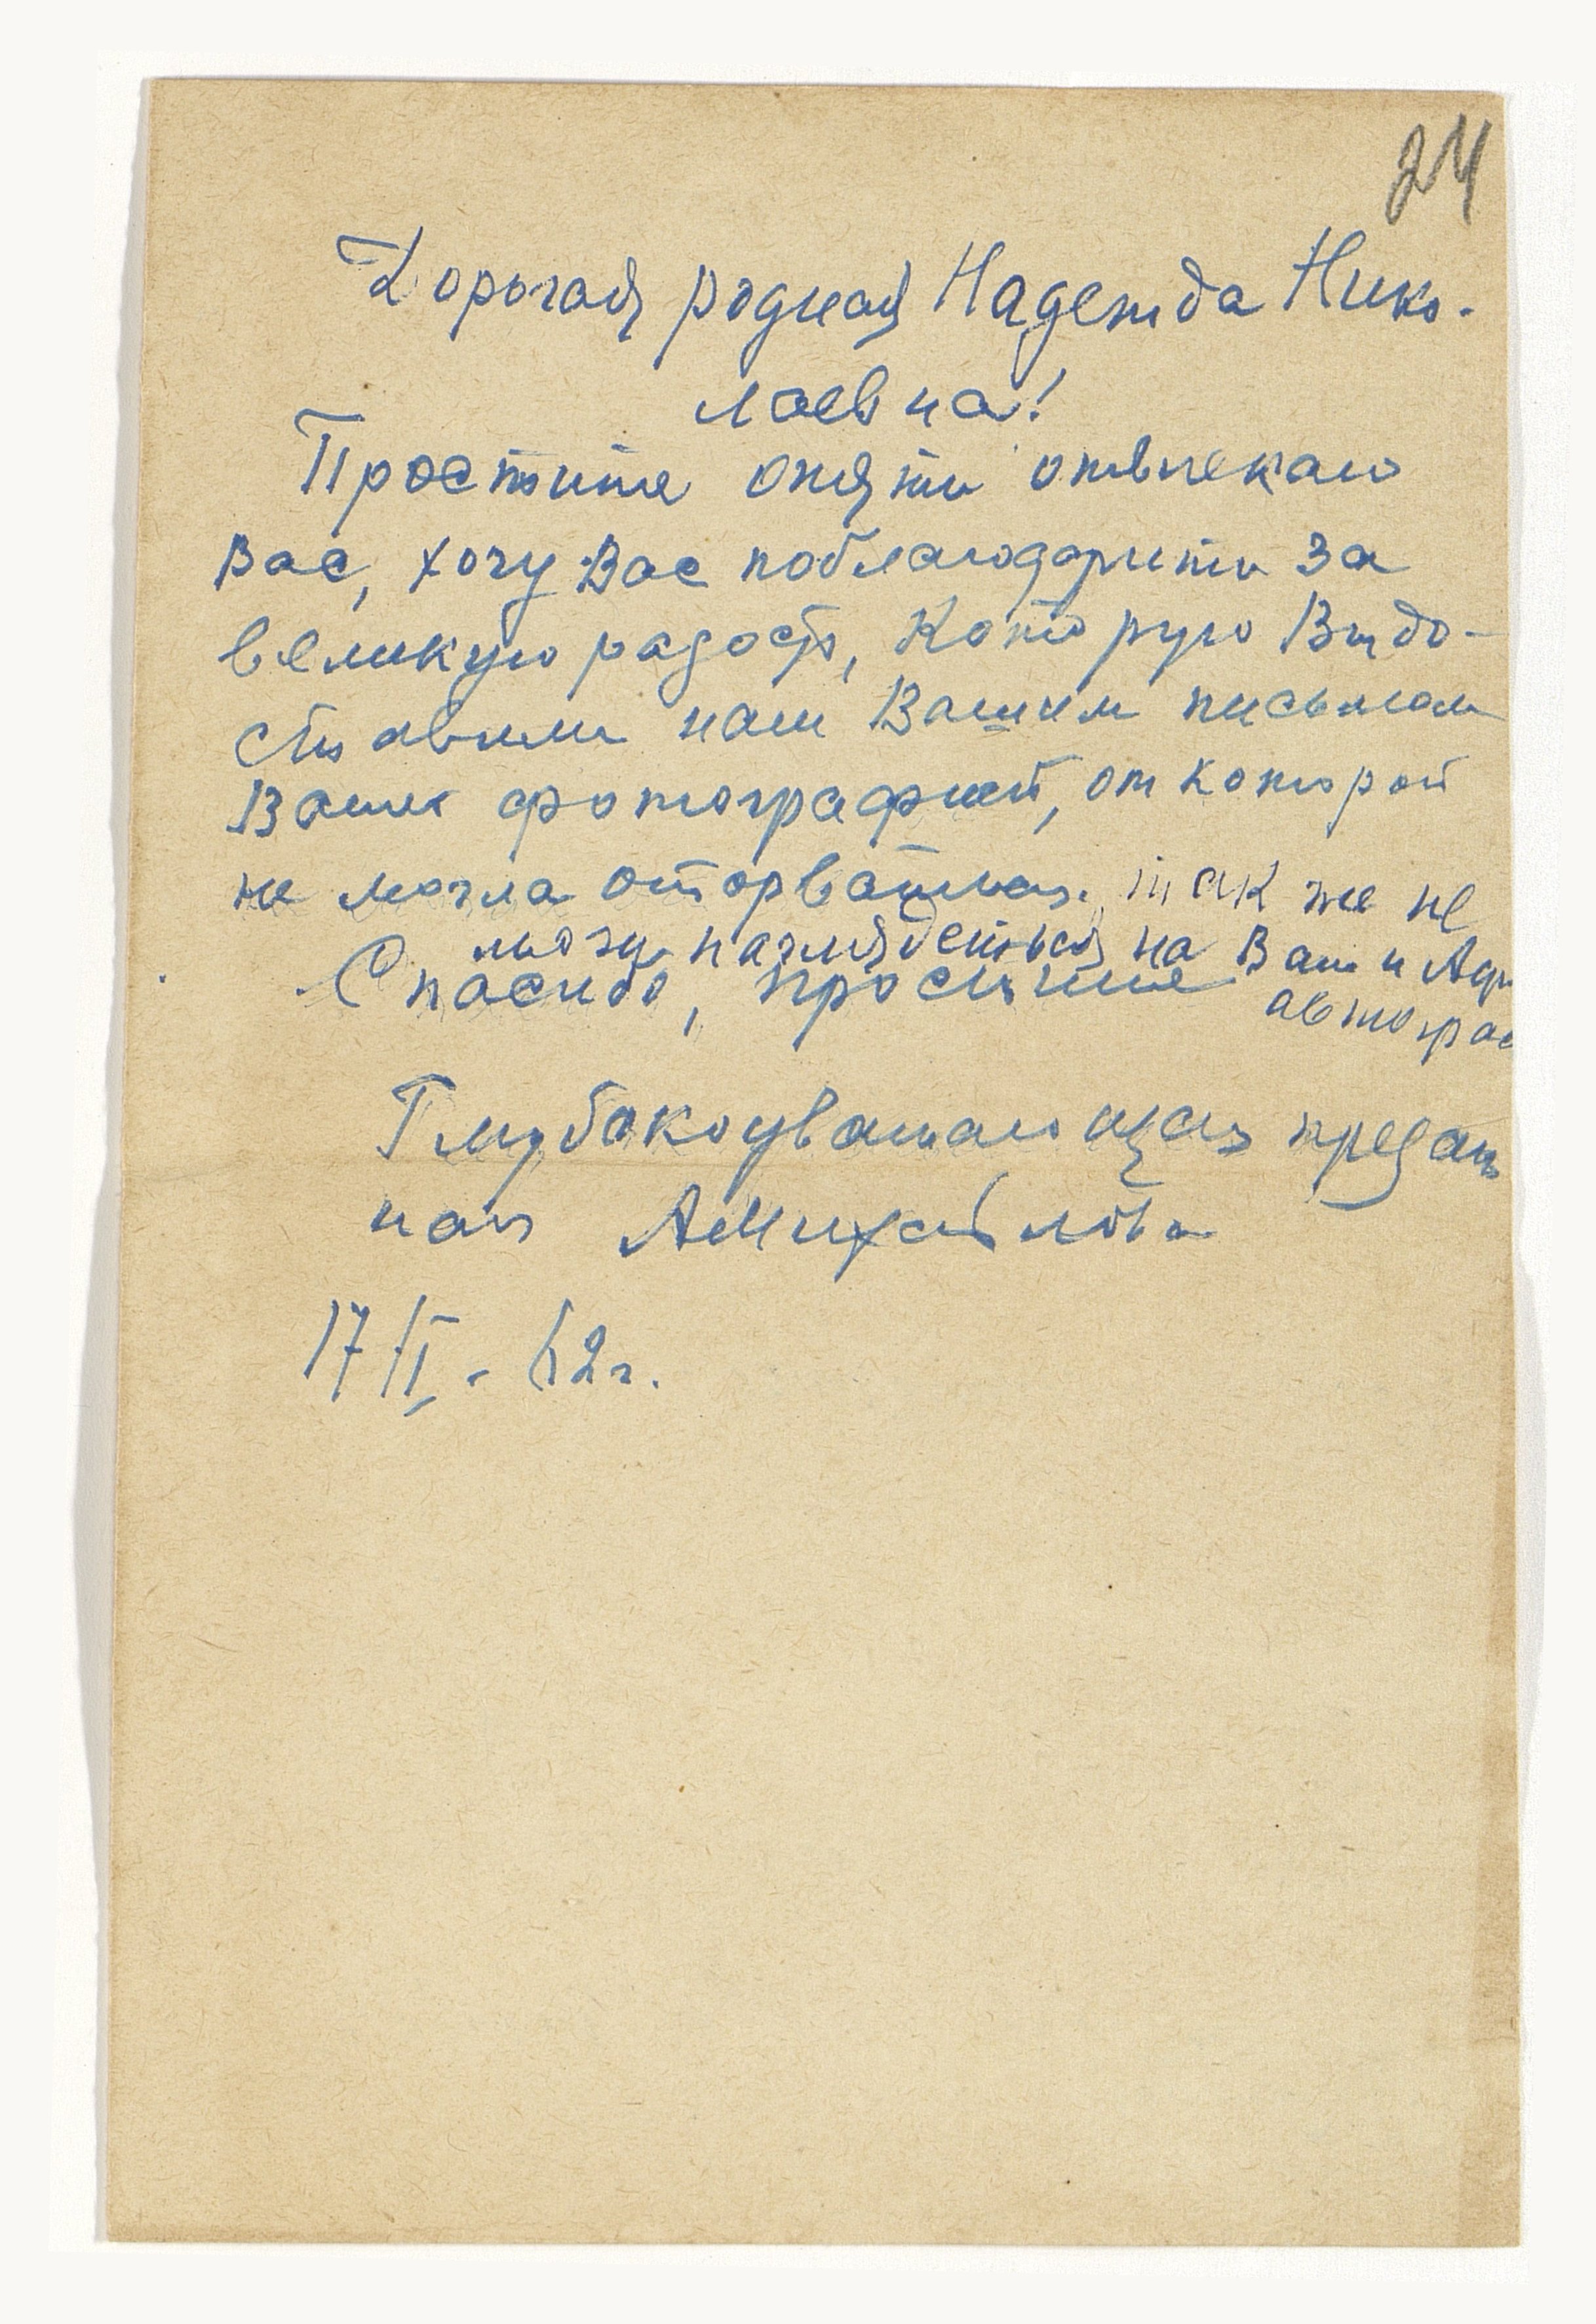 24
Дорогая родная Надежда Нико-
лаевна!
Простите опять отвлекаю
Вас, хочу Вас поблагодарить за
великую радость, которую Вы до-
ставили нам Вашим письмом
Вашей фотографией, от которой
не могла оторваться. так же не
могу наглядеться на Ваш и
автогра
Спасибо, простите
Глубокоуважающая предан
ная АМихайлова
17/II - 62г.